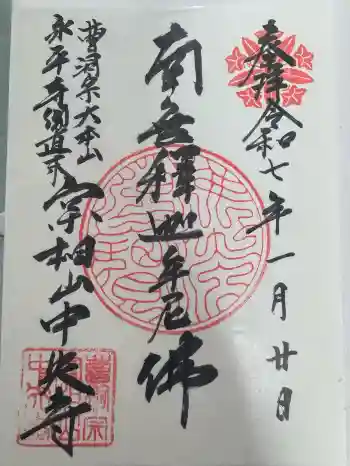 奉拝 令和七年一月廿日
南無釋迦牟尼佛
曹洞宗大本山
永平寺御直末
宗相山中央寺